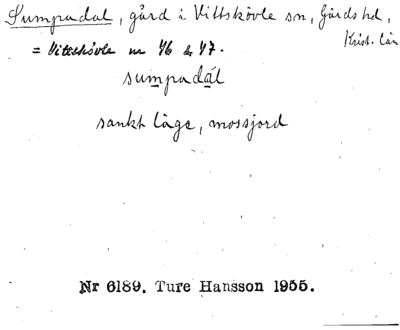 Sumpadal, gård i Vittskövle sn, Gärds hd,
Krist. län
= Vittskövle nr 46 & 47.
sumpadál
sankt läge, mossjord
Nr 6189. Ture Hansson 1955.